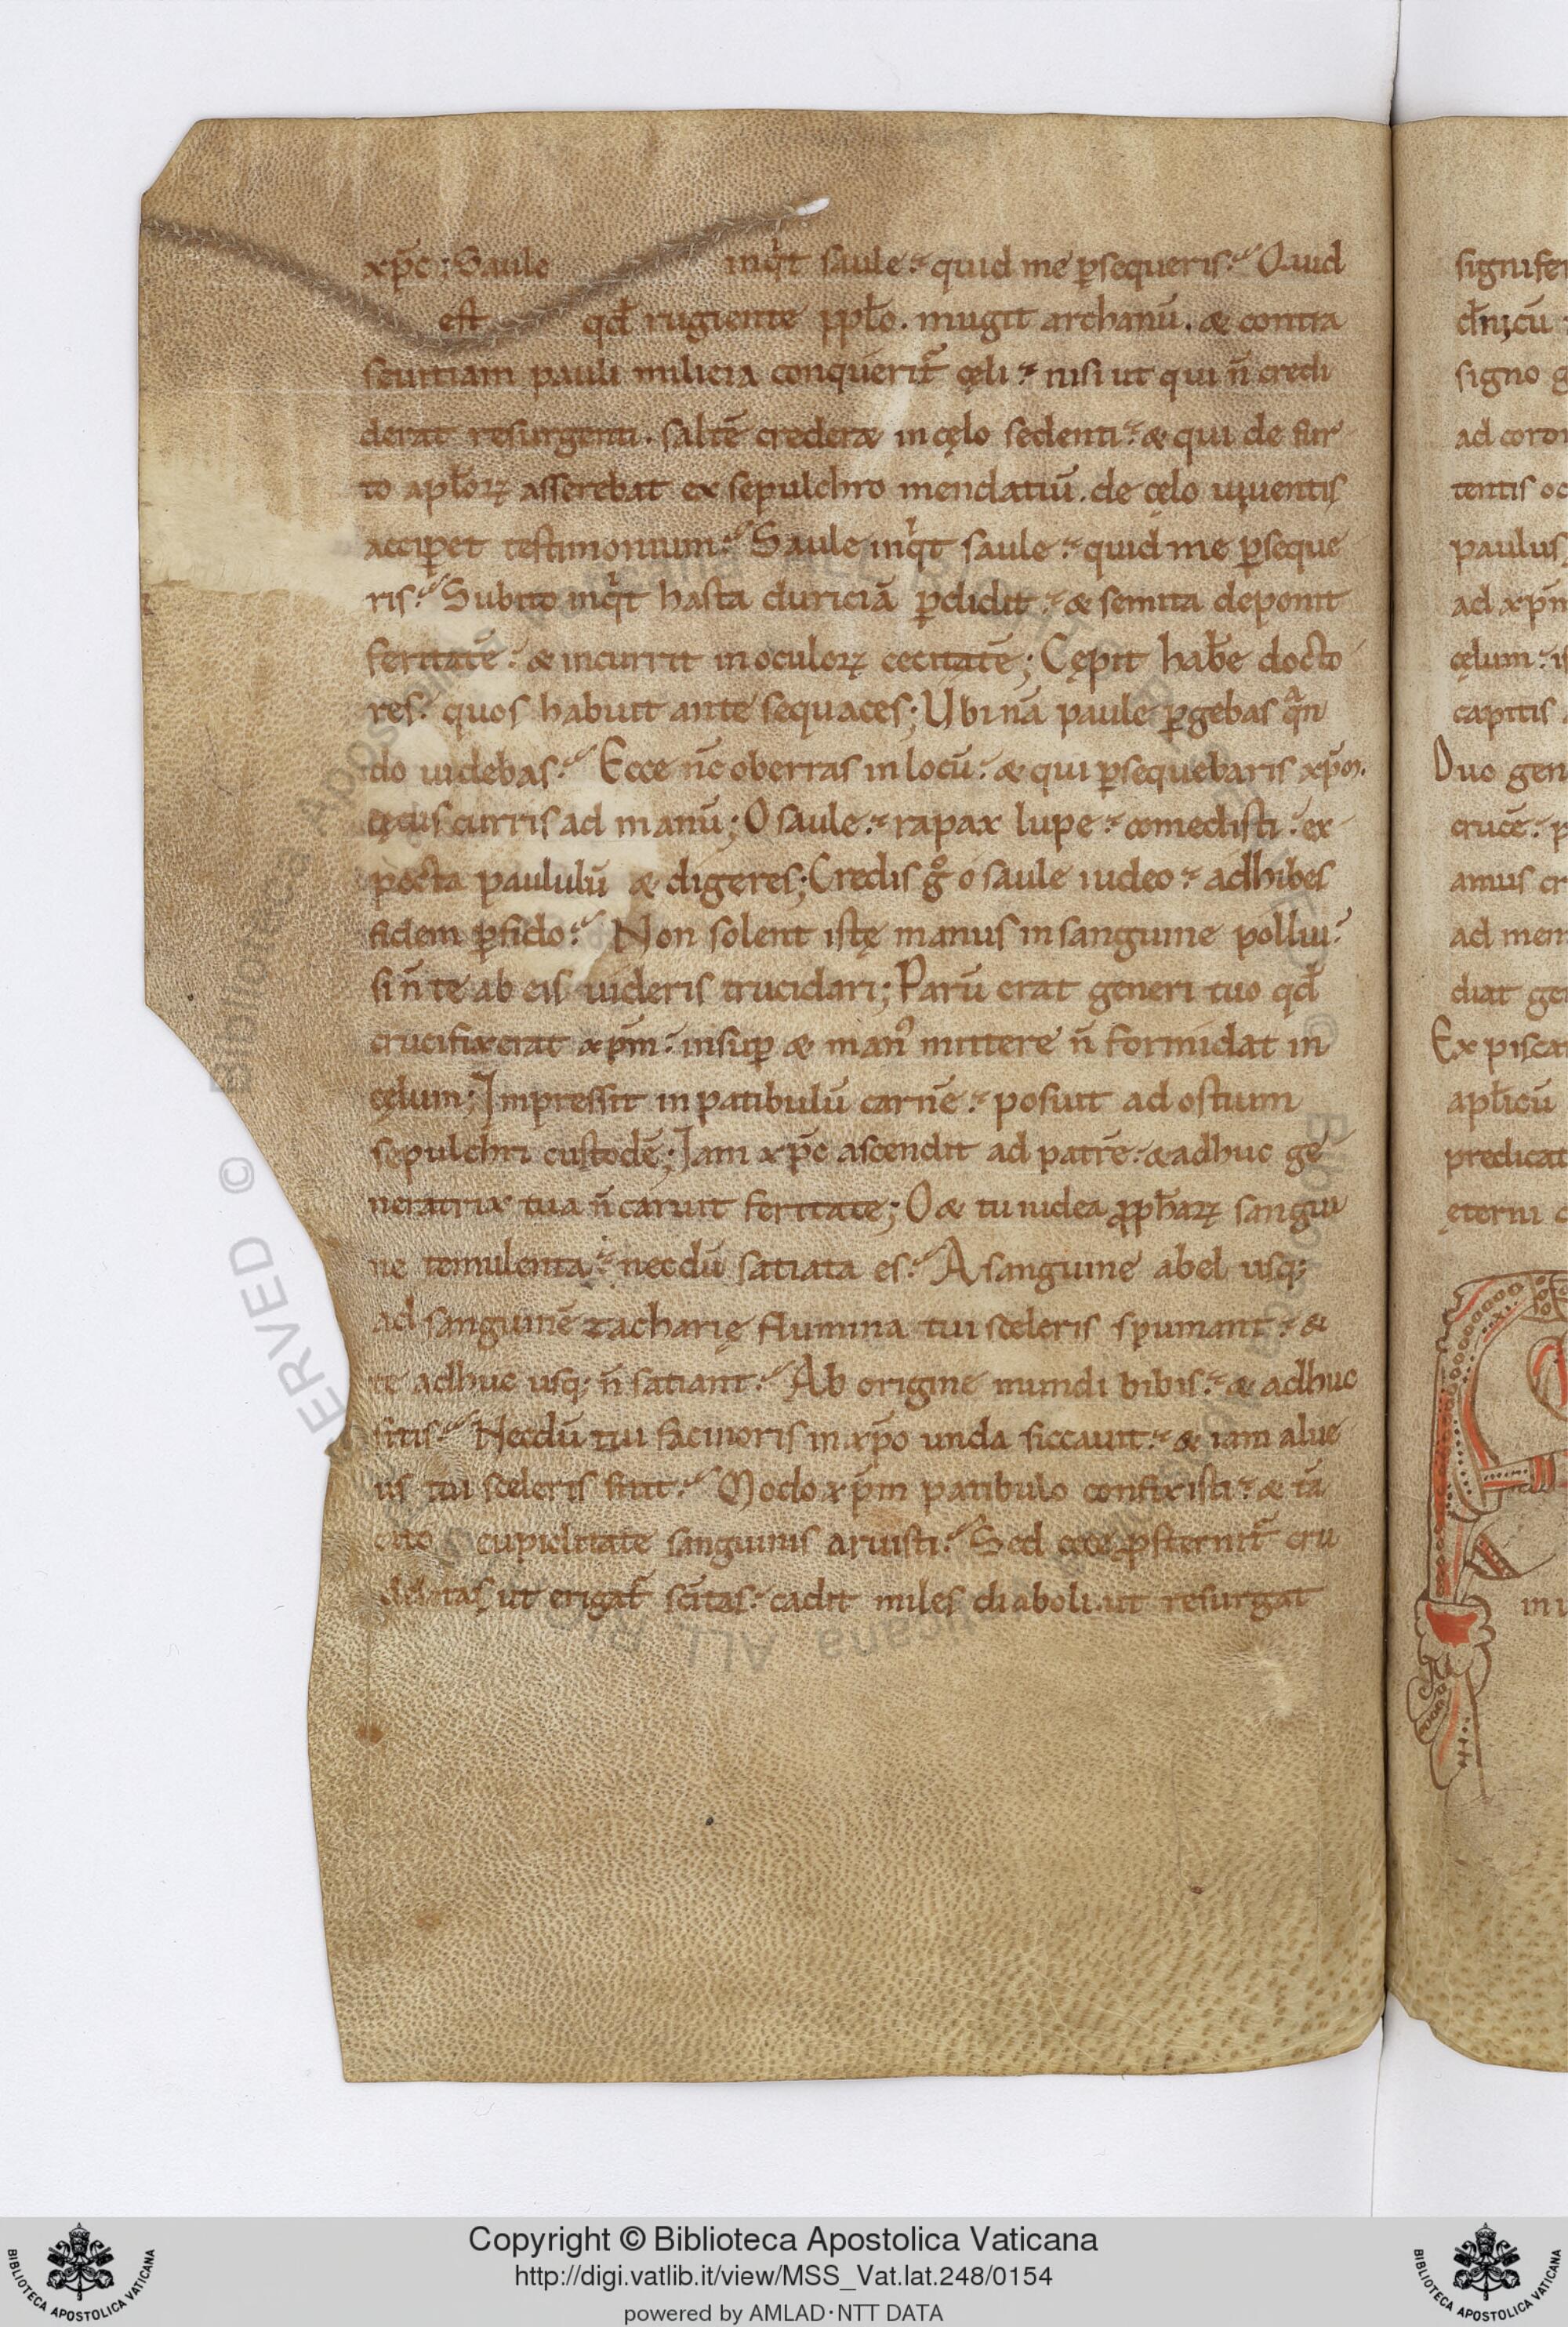 xp̄c ; Saule inqͥt saule : quid me ꝑsequeris : Quid
est qđ rugiente ppło . mugit archanū . & contra
seuitiam pauli milicia conquerit̄ cęli : nisi ut qui n̄ credi
derat resurgenti . saltē crederæ in cęlo sedenti : & qui de fur
to apłoꝝ asserebat ex sepulchro mendatiū . de cęlo uiuentis
acciꝑet testimonium : Saule inqͥt saule : quid me ꝑseque
ris : Subito inqͥt hasta duriciā ꝑdidit : & semita deponit
feritatē : & incurrit in oculoꝝ cecitatē ; Cępit habe̅ docto
res : quos habuit ante sequaces ; Ubi nā paule ꝑgebas qᷓn
do uidebas : Ecce nc̄ oberras in locū : & qui ꝑsequebaris xp̄m .
cęcus curris ad manū ; O saule : rapax lupe : comedisti : ex
pecta paululū & digeres ; Credis gͦ o saule iudeo : adhibes
fidem ꝑfido : Non solent istę manus in sanguine pollui :
si n̄ te ab eis uideris trucidari ; Parū erat generi tuo qđ
crucifixerat xp̄m : insuꝑ & manꝰ mittere n̄ formidat in
cęlum ; Impressit in patibulū carnē : posuit ad ostium
sepulchri custodē ; Iam xp̄c ascendit ad patrē : & adhuc ge
neratrix tua n̄ caruit feritate ; O & tu iudea ꝓph̄arꝝ sangui
ne temulenta : necdū satiata es : A sanguine abel usq;
ad sanguinē zacharię flumina tui sceleris spumant : &
te adhuc usq; n̄ satiant : Ab origine mundi bibis : & adhuc
sitis : Necdū tui facinoris in xp̄o unda siccauit : & iam alue
us tui sceleris sitit : Modo xp̄m patibulo confixisti : & tā
cito cupiditate sanguinis aruisti : Sed ecce ꝓsternit̄ cru
delitas ut erigat̄ sc̄itas : cadit miles diaboli . ut resurgat
signifer
dn̄icū
signo g
ad coron
tentis oc
paulus
ad xp̄m
cęlum : i
capitis
Duo gen
crucē : p
amus cr
ad mem
diat ge
Ex pisca
apłicū
predicat
ęterni
in i
Copyright © Biblioteca Apostolica Vaticana
http://digi.vatlib.it/view/MSS_Vat.lat.248/0154
powered by AMLAD·NTT DATA
BIBLIOTECA APOSTOLICA VATICANA
BIBLIOTECA APOSTOLICA VATICANA